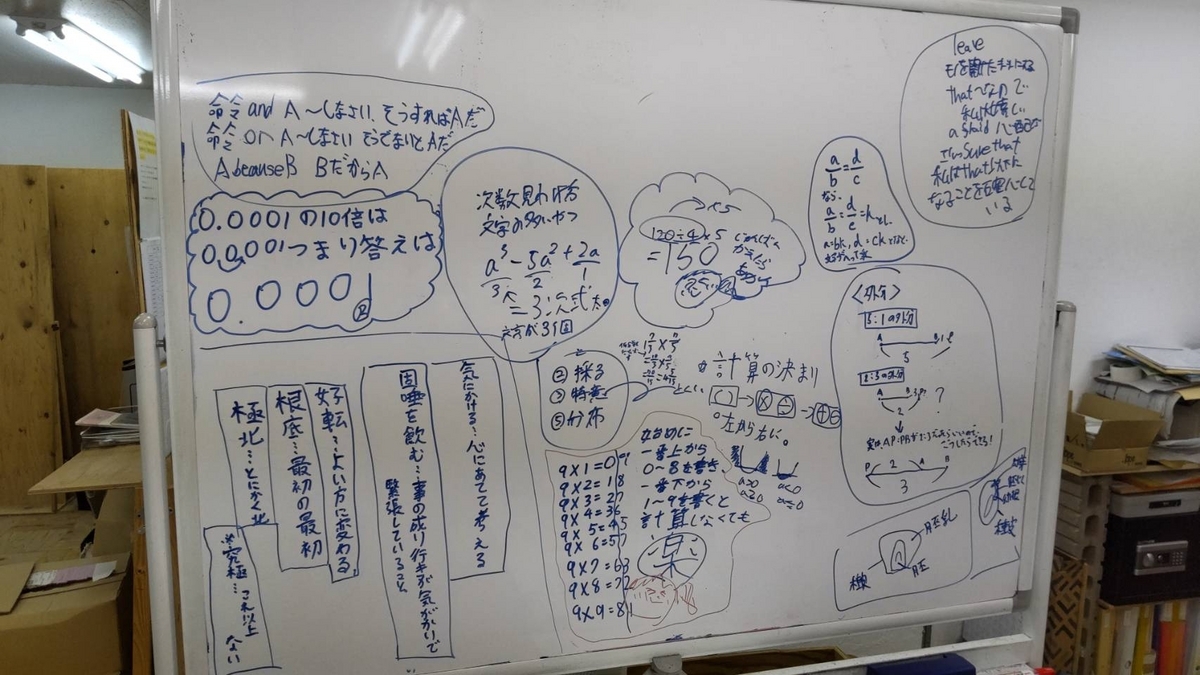 命令 and A ～しなさい、そうすればAだ
命令 or A ～しなさい そうでないとAだ
A because B BだからA
0.0001の10倍は
0.0001つまり答えは
0.0001
次数見わける
文字の多いやつ
a³/3 - 5a²/2 + 2a/1
= 3次式
文字が3個
→×5
120÷4×5
=150
a/b = d/c
なら、
a/b = d/c = kとし、
a=bk, d=ckとして、
leave
that～なので
私は嬉しい
I'm sure that
私はthat以下に
なることを確信して
いる
<外分>
5:1の外分
A B 1 P
5
2:3の外分
A B
2
?
P 2 A B
3
胚乳
胚
計算の決まり
( )→×÷→+⊖
○左から右に。
②採る
③特意
⑤分布
ななめに
一番上から
0～8を書き
一番下から
1～9を書くと
計算しなくても
楽
9×1=09
9×2=18
9×3=27
9×4=36
9×5=45
9×6=54
9×7=63
9×8=72
9×9=81
a>0
a<0
気にかける…心にあてて考える
固唾を飲む…事の成り行きが気がかりで
緊張していること
好転…よい方に変わる
根底…最初の最初
極北…とにかく北
※究極…これ以上
ない